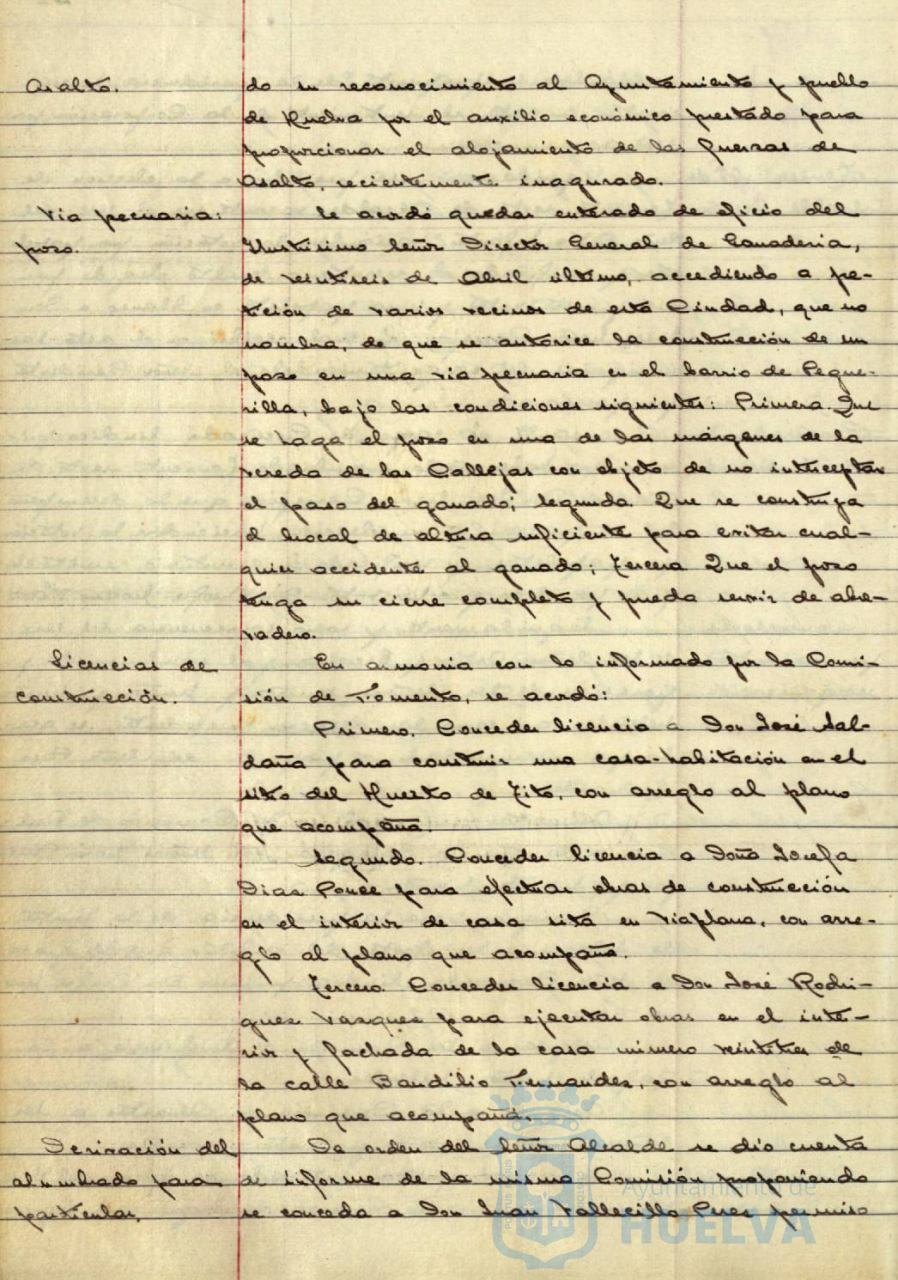 Asalto.
do su reconocimiento al Ayuntamiento y pueblo
de Huelva por el auxilio económico prestado para
proporcionar el alojamiento de las fuerzas de
Asalto, recientemente inagurado.
Vía pecuaria:
pozo.
Se acordó quedar enterado de oficio del
Ilustrísimo Señor Director General de Ganadería,
de veintiseis de Abril último, accediendo a pe-
tición de varios vecinos de esta Ciudad, que no
nombra, de que se autorice la construcción de un
pozo en una vía pecuaria en el barrio de Pegue-
rilla, bajo las condiciones siguientes: Primera. Que
se haga el pozo en una de las márgenes de la
vereda de las Callejas con objeto de no interceptar
el paso del ganado; Segunda Que se construya
el brocal de altura suficiente para evitar cual-
quier accidente al ganado; Tercera Que el pozo
tenga su cierre completo y pueda servir de abre-
vadero.
Licencias de
construcción.
En armonía con lo informado por la Comi-
sión de Fomento, se acordó:
Primero. Conceder licencia a Don José Sal-
daña para construir una casa-habitación en el
sitio del Huerto de Tito, con arreglo al plano
que acompaña.
Segundo. Conceder licencia a Doña Josefa
Dias Ponce para efectuar obras de construcción
en el interior de casa sita en Viaplana, con arre-
glo al plano que acompaña.
Tercero. Conceder licencia a Don José Rodri-
guez Vazquez para ejecutar obras en el inte-
rior y fachada de la casa número veintitres de
la calle Baudilio Fernandez, con arreglo al
plano que acompaña.
Derivación del
alumbrado para
particular.
De orden del Señor Alcalde se dio cuenta
de informe de la misma Comisión proponiendo
se conceda a Don Juan Vallecillo Peres permiso
Ayuntamiento de
HUELVA